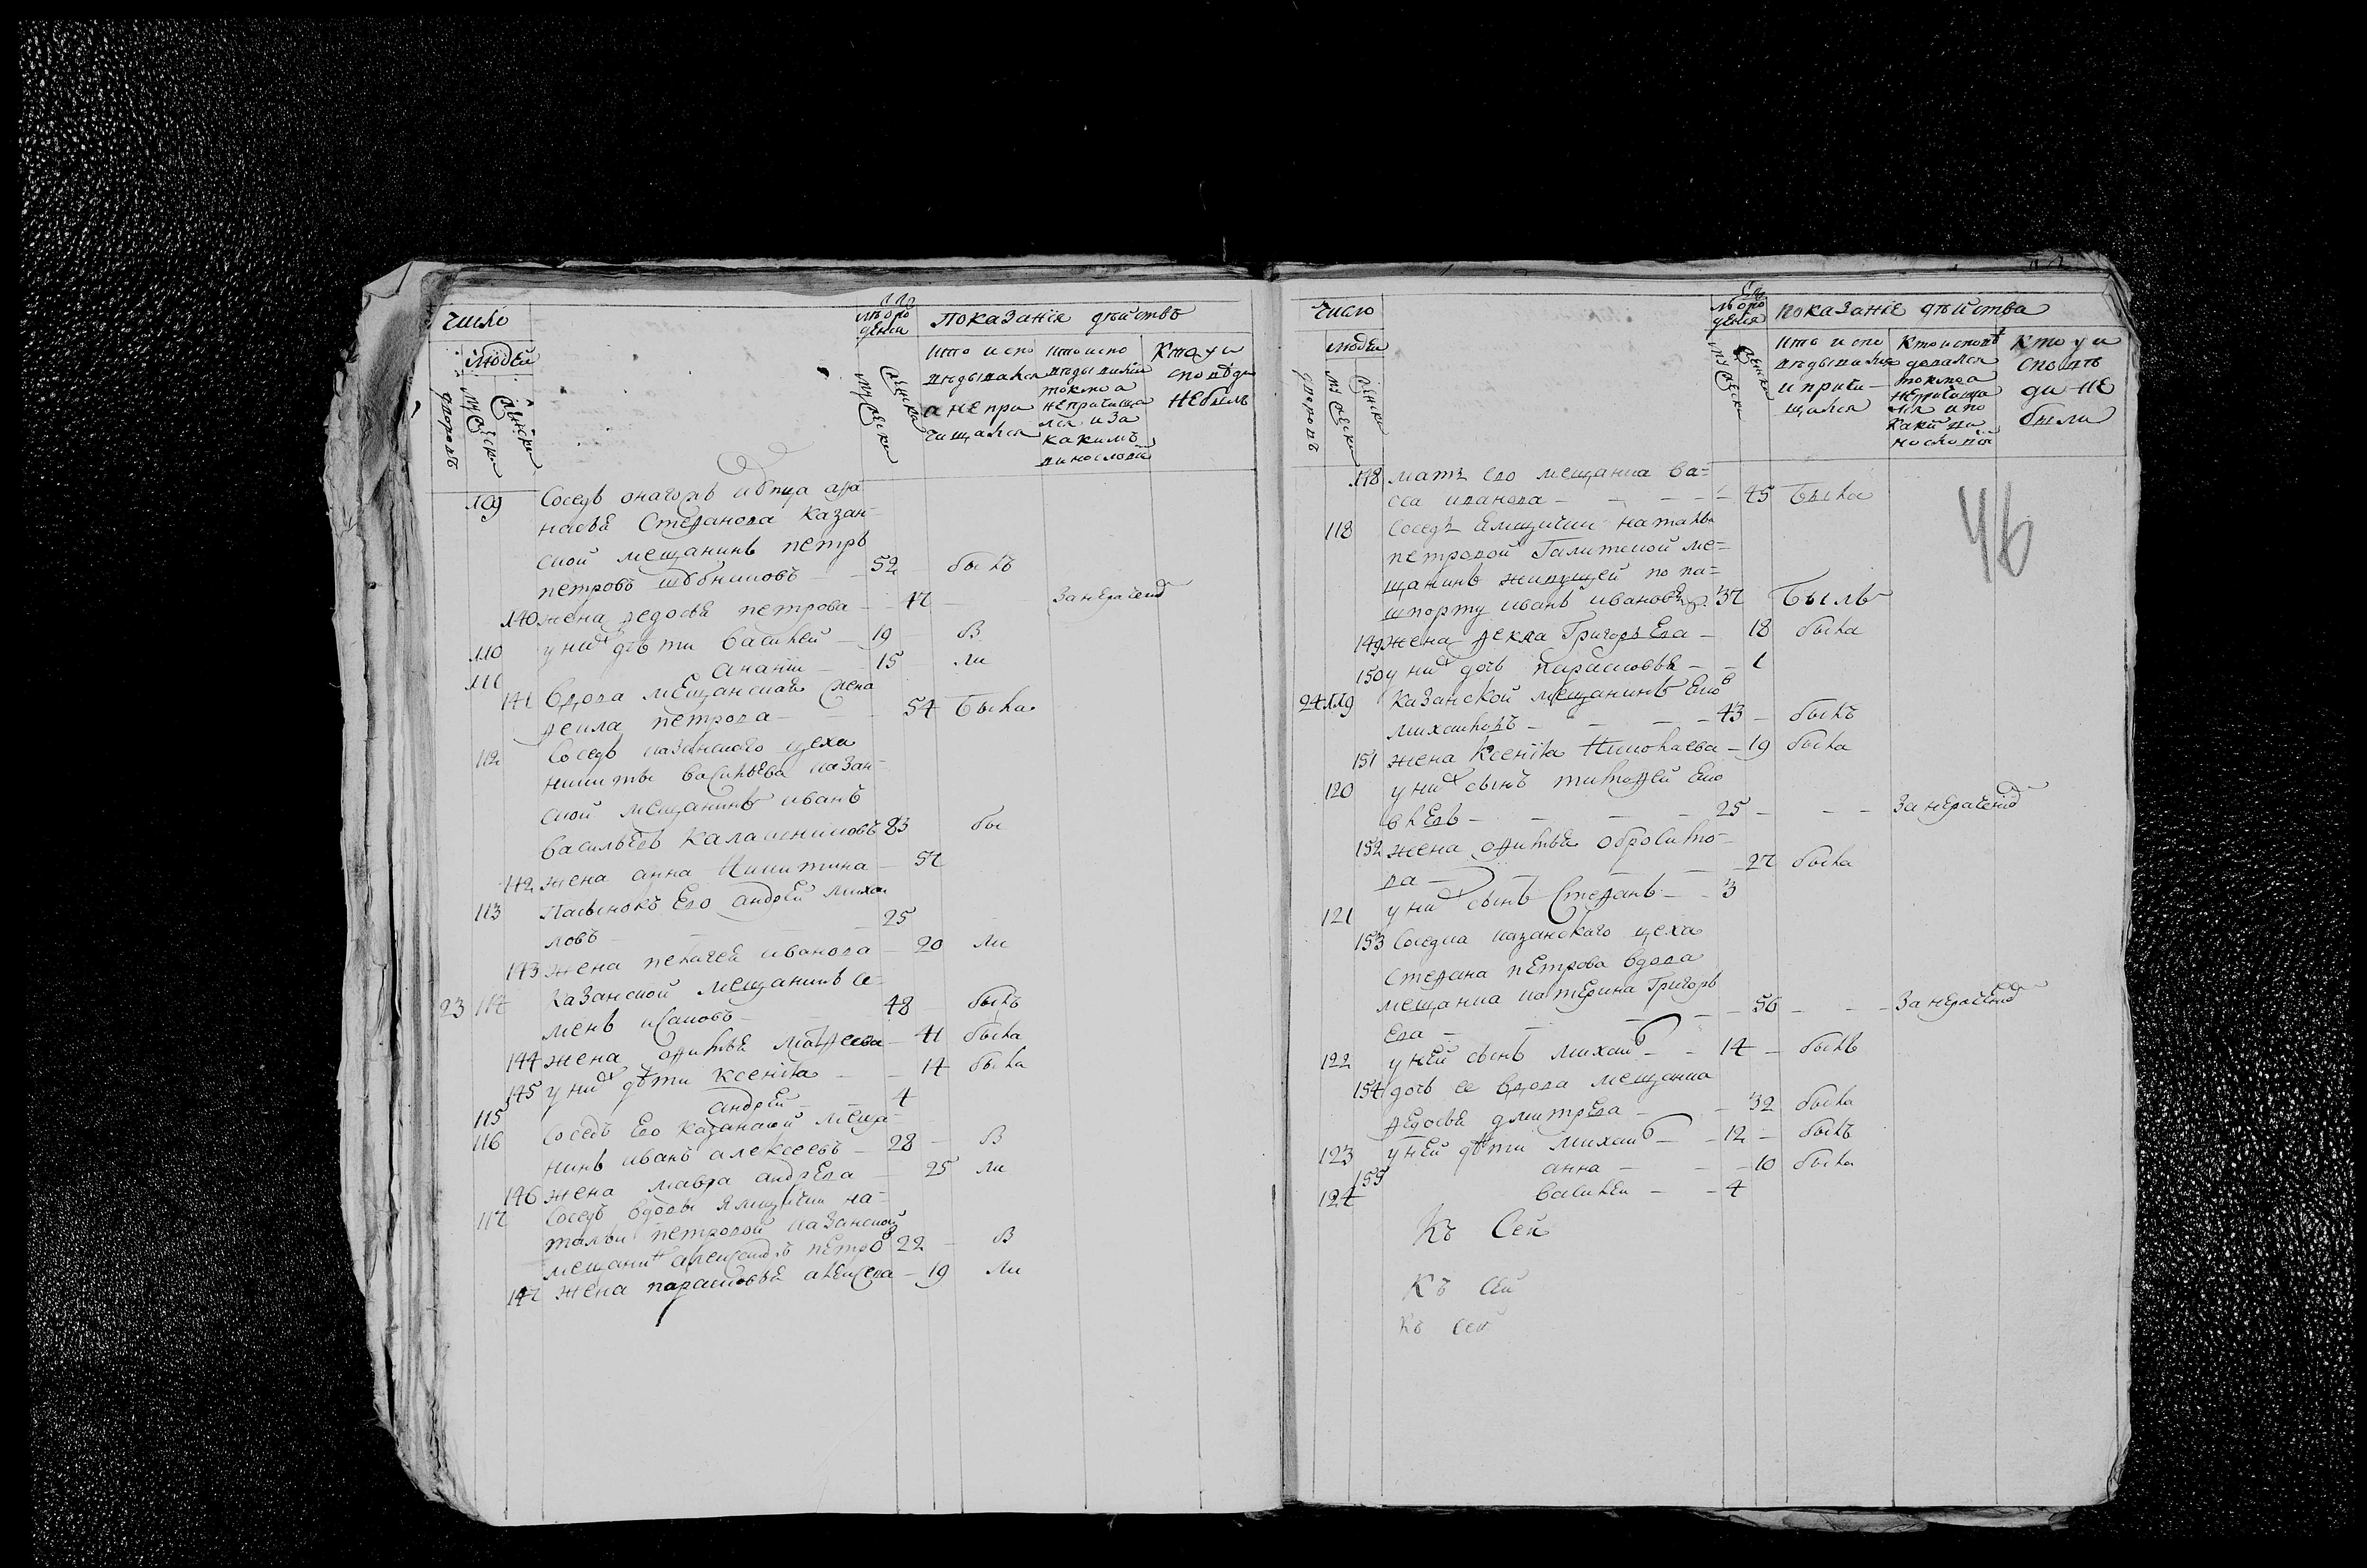 Число
Людей
дворовъ
мужеска
женска
лѣ
тъ рож
денія
мужеска
женска
Показаніе дѣйствъ
Кто испо
вѣдывался
а не при
чащался
кто испо
вѣдывался
токмо а
не причаща
лся и за
какимъ
винословіе
Кто у и
сповѣди
не былъ
109 Соседъ онагожъ купца афа
насья Стефанова казан-
ской мещанинъ петръ
петровъ 52 былъ
140 жена федосья петрова 47 За нерачені
110 у них дѣти василей 19 б
111 ананiи 15 ли
141 вдова мещанская жена
фекла петрова 54 была
112 Соседъ казанского цеха
никиты васильева казан-
ской мещанинъ иванъ
васильевъ Калашниковъ 83 бы
142 жена анна Никитина 57
113 Пасынокъ Его андрей михаи
ловъ 25
143 жена пелагея иванова 20 ли
23 114 Казанской мещанинъ се-
менъ исаковъ 48 былъ
144 жена офимья матфеева 41 была
145 у них дѣти Ксенiя 14 была
115 андрей 4
116 Соседъ Его Казанской меща
нинъ иванъ алексеевъ 28 б
146 жена мавра андрева 25 ли
117 Соседъ вдовы ямщички на-
тальи петровой казанской
мещанин александръ петро 22 б
147 жена парасковья алексева 19 ли
Число
Людей
дворовъ
мужеска
женска
лѣ
тъ рож
денія
мужеска
женска
Показаніе дѣйства
Кто испо
вѣдывался
и прича-
щался
Кто исповѣ
довался
токмо а
не причаща
лся и по
какой ви
нословіи
Кто у и
сповѣ
ди не
были
46
148 мать его мещанка ва-
сса иванова 45 Была
118 Соседъ ямщички натальи
петровой Галитской ме-
щанинъ живущей по па-
шпорту иванъ ивановъ 37 Былъ
149 жена фекла Григорьева 18 была
150 у них дочь парасковья 1
24 119 Казанской мещанинъ Яко
михаиловъ 43 былъ
151 жена Ксенiя Николаева 19 была
120 у них сынъ тимофей Яко
влевъ 25 За нерачені
152 жена офимья
ва 27 была
121 у них сынъ Стефанъ 3
153 Соседка казанскаго цеха
Стефана петрова вдова
мещанка катерина Григорь
ева 56 За нерачені
122 у ней сынъ михаи 14 былъ
154 дочь ее вдова мещанка
федосья дмитрева 32 была
123 у ней дѣти михаи 12 былъ
155 анна 10 была
124 василей 4
Къ Сей
Къ Сей
Къ Сей